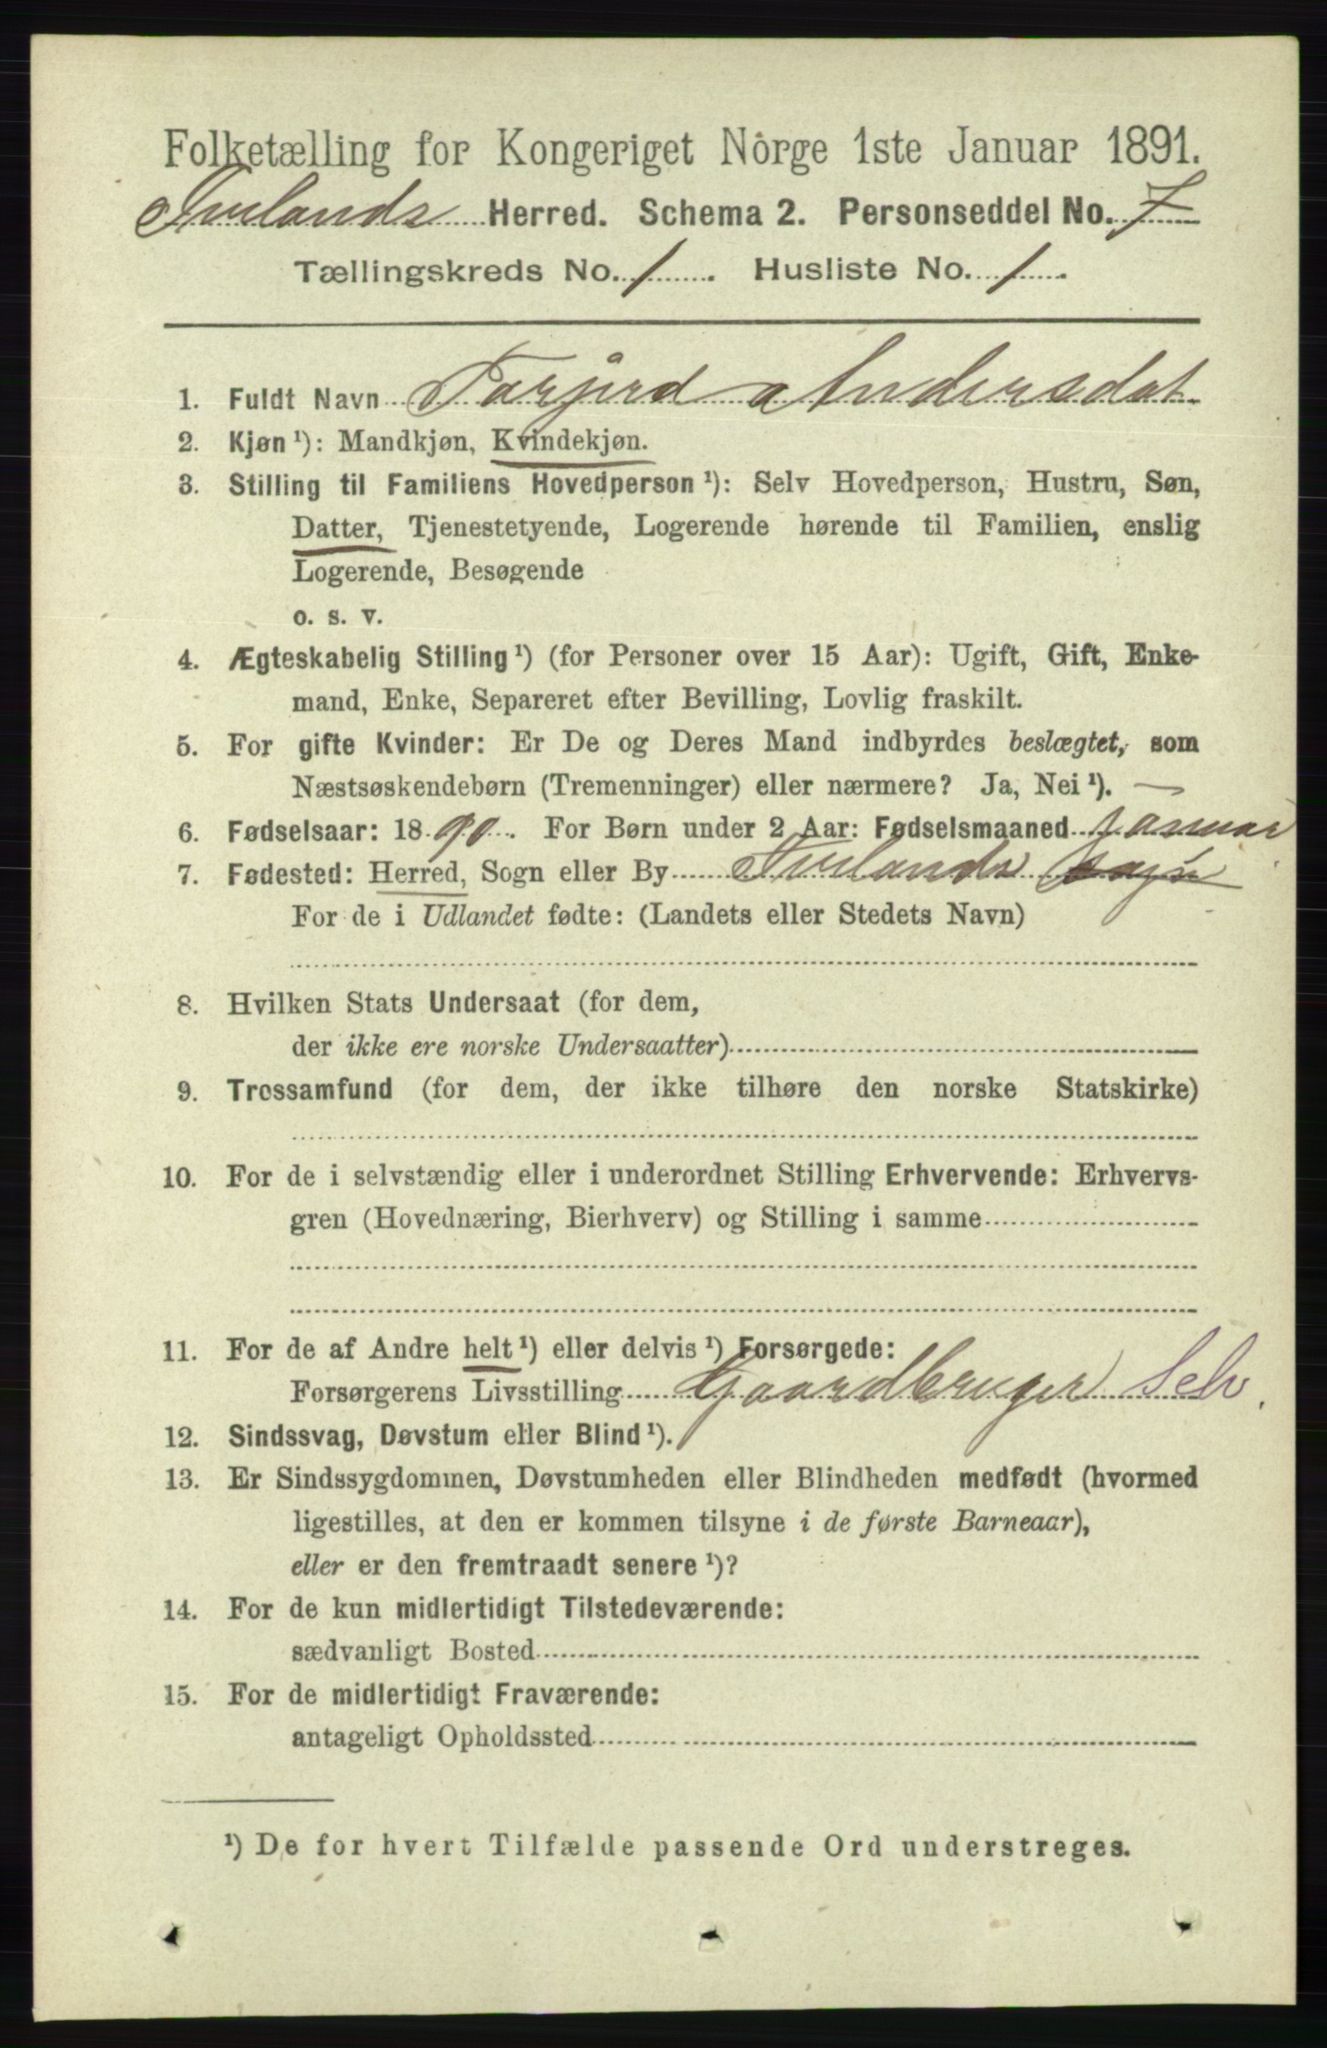 Folketælling for Kongeriget Norge 1ste Januar 1891.
Iveslands Herred. Schema 2. Personseddel No. 7
Tællingskreds No. 1. Husliste No. 1.
1. Fuldt Navn Torjerd Andersdat
2. Kjøn ¹): Mandkjøn, Kvindekjøn.
3. Stilling til Familiens Hovedperson ¹): Selv Hovedperson, Hustru, Søn,
Datter, Tjenestetyende, Logerende hørende til Familien, enslig
Logerende, Besøgende
o. s. v.
4. Ægteskabelig Stilling ¹) (for Personer over 15 Aar): Ugift, Gift, Enke-
mand, Enke, Separeret efter Bevilling, Lovlig fraskilt.
5. For gifte Kvinder: Er De og Deres Mand indbyrdes beslægtet, som
Næstsøskendebørn (Tremenninger) eller nærmere? Ja, Nei ¹). —
6. Fødselsaar: 1890. For Børn under 2 Aar: Fødselsmaaned januar
7. Fødested: Herred, Sogn eller By Iveslands sogn
For de i Udlandet fødte: (Landets eller Stedets Navn)
8. Hvilken Stats Undersaat (for dem,
der ikke ere norske Undersaatter)
9. Trossamfund (for dem, der ikke tilhøre den norske Statskirke)
10. For de i selvstændig eller i underordnet Stilling Erhvervende: Erhvervs-
gren (Hovednæring, Bierhverv) og Stilling i samme
11. For de af Andre helt ¹) eller delvis ¹) Forsørgede:
Forsørgerens Livsstilling Gaardbruger Selv.
12. Sindssvag, Døvstum eller Blind ¹).
13. Er Sindssygdommen, Døvstumheden eller Blindheden medfødt (hvormed
ligestilles, at den er kommen tilsyne i de første Barneaar),
eller er den fremtraadt senere ¹)?
14. For de kun midlertidigt Tilstedeværende:
sædvanligt Bosted
15. For de midlertidigt Fraværende:
antageligt Opholdssted
¹) De for hvert Tilfælde passende Ord understreges.